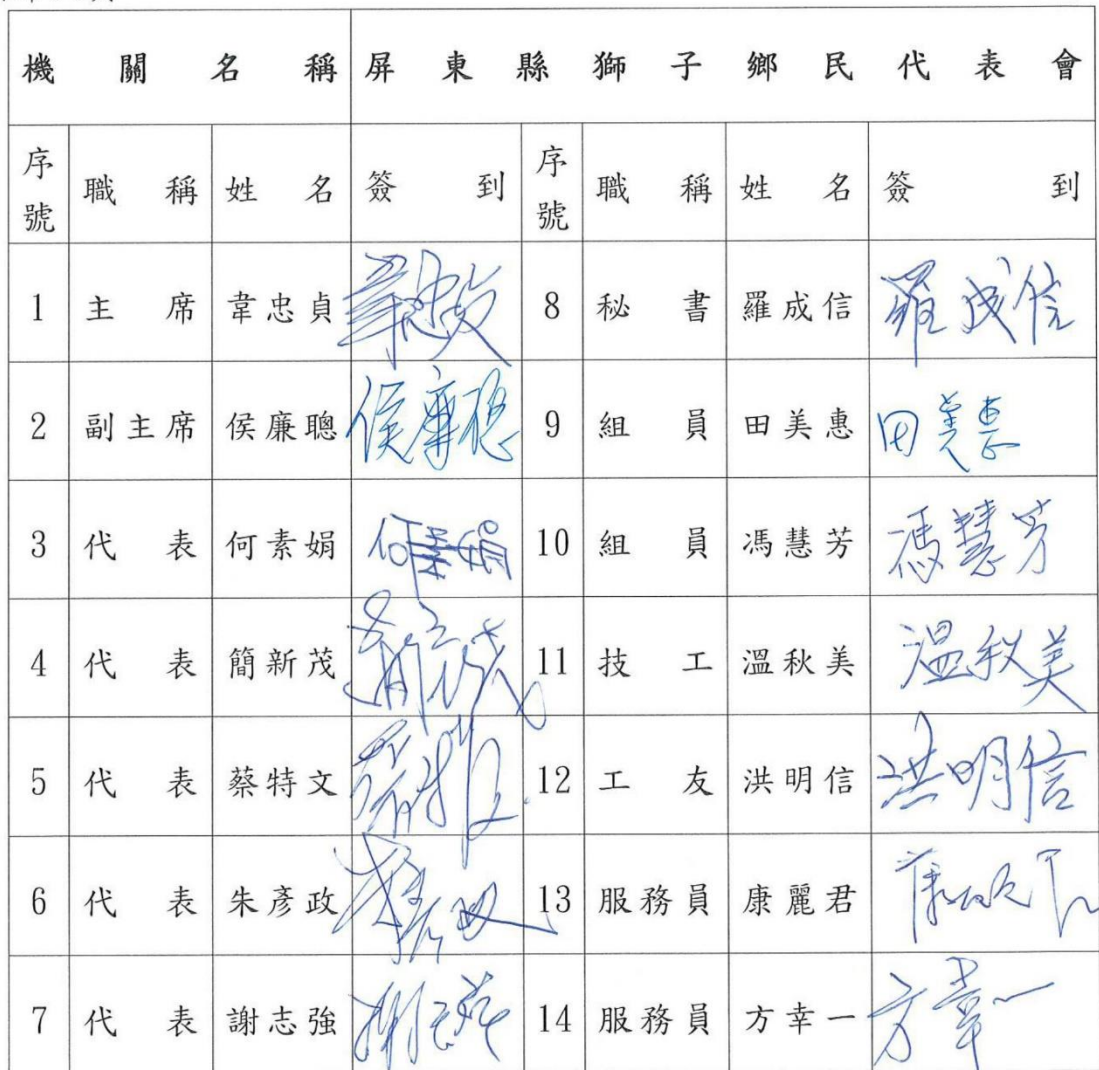 機關名稱 屏東縣獅子鄉民代表會
序號 職稱 姓名 簽到 序號 職稱 姓名 簽到
1 主席 韋忠貞 8 秘書 羅成信 羅成信
2 副主席 侯廉聰 侯廉聰 9 組員 田美惠 田美惠
3 代表 何素娟 何素娟 10 組員 馮慧芳 馮慧芳
4 代表 簡新茂 11 技工 溫秋美 溫秋美
5 代表 蔡特文 12 工友 洪明信 洪明信
6 代表 朱彥政 13 服務員 康麗君
7 代表 謝志強 14 服務員 方幸一 方幸一